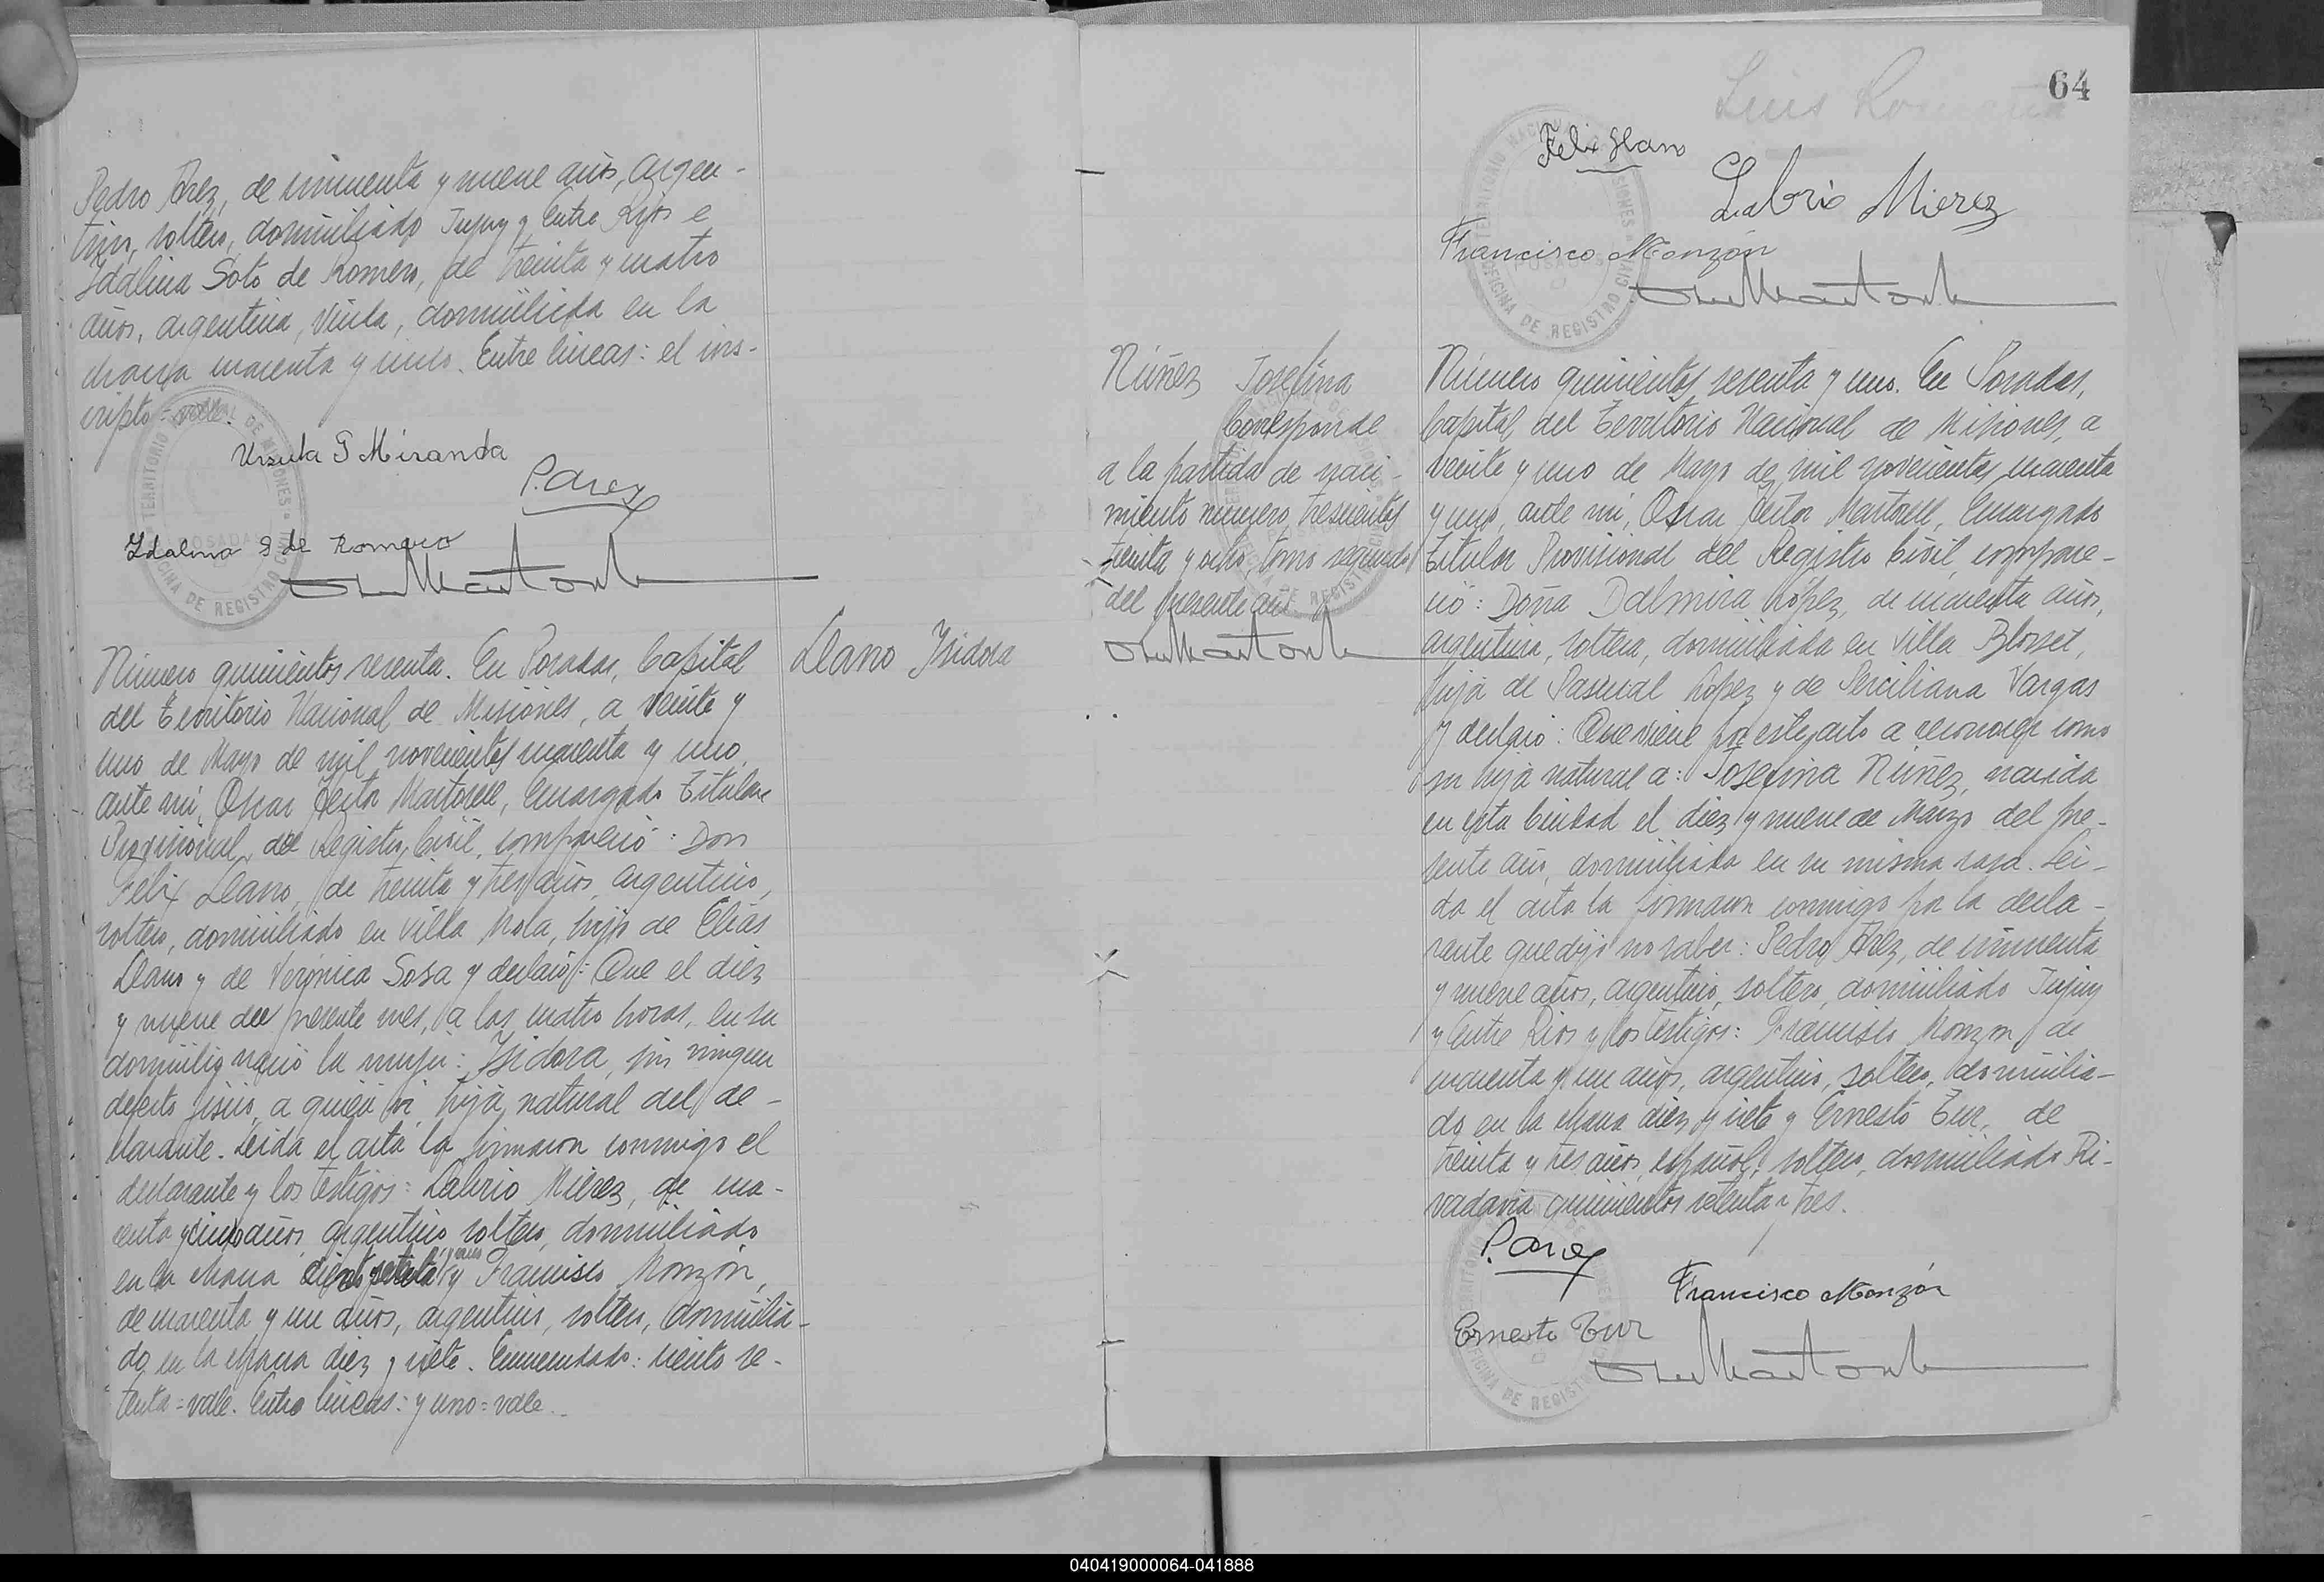 Pedro Arez, de cincuenta y nueve años, argen-
tino, soltero, domiciliado Jujuy y Entre Rios e
Idalina Soto de Romero, de treinta y cuatro
años, argentina, viuda, domiciliada en la
chacra cuarenta y uno. Entre lineas: el ins-
cripto = vale.
Ursula S Miranda
P. Arez
Idalina S de Romero
Número quinientos sesenta. En Posadas, Capital
del Territorio Nacional de Misiones, a veinte y
uno de Mayo de mil novecientos cuarenta y uno,
ante mi, Oscar Hector Martorell, Encargado Titular
Provisional del Registro Civil, compareció: Don
Felix Llano, de treinta y tres años, argentino,
soltero, domiciliado en Villa Mola, hijo de Elias
Llano y de Verónica Sosa y declaró: Que el diez
y nueve del presente mes, a las cuatro horas, en su
domicilio nació la mujer: Isidora, sin ningun
defecto fisico, a quien vi, hija natural del de-
clarante. Leida el acta la firmaron conmigo el
declarante y los testigos: Laberio Mierez, de cua-
renta y cinco años, argentino, soltero, domiciliado
en la chacra ciento setenta y uno y Francisco Monzón,
de cuarenta y un años, argentino, soltero, domicilia-
do en la chacra diez y siete. Enmendado: ciento se-
tenta = vale. Entre lineas: y uno = vale.
Llano Isidora
64
Felix Llano
Laberio Mierez
Francisco Monzón
Núñez Josefina
Corresponde
a la partida de naci-
miento numero trescientos
treinta y ocho, tomo segundo
del presente año.
Número quinientos sesenta y uno. En Posadas,
Capital del Territorio Nacional de Misiones, a
veinte y uno de Mayo de mil novecientos cuarenta
y uno, ante mi, Oscar Hector Martorell, Encargado
Titular Provisional del Registro Civil, compare-
ció: Doña Dalmira López, de cuarenta años,
argentina, soltera, domiciliada en Villa Blosset,
hija de Pascual López y de Perciliana Vargas
y declaró: Que viene por este acto a reconocer como
su hija natural a: Josefina Núñez, nacida
en esta Ciudad el diez y nueve de Marzo del pre-
sente año, domiciliada en su misma casa. Lei-
da el acta la firmaron conmigo por la decla-
rante que dijo no saber: Pedro Arez, de cincuenta
y nueve años, argentino, soltero, domiciliado Jujuy
y Entre Rios y los testigos: Francisco Monzon, de
cuarenta y un años, argentino, soltero, domicilia-
do en la chacra diez y siete y Ernesto Tur, de
treinta y tres años, español, soltero, domiciliado Ri-
vadavia quinientos setenta y tres.
P. Arez
Francisco Monzón
Ernesto Tur
040419000064-041888